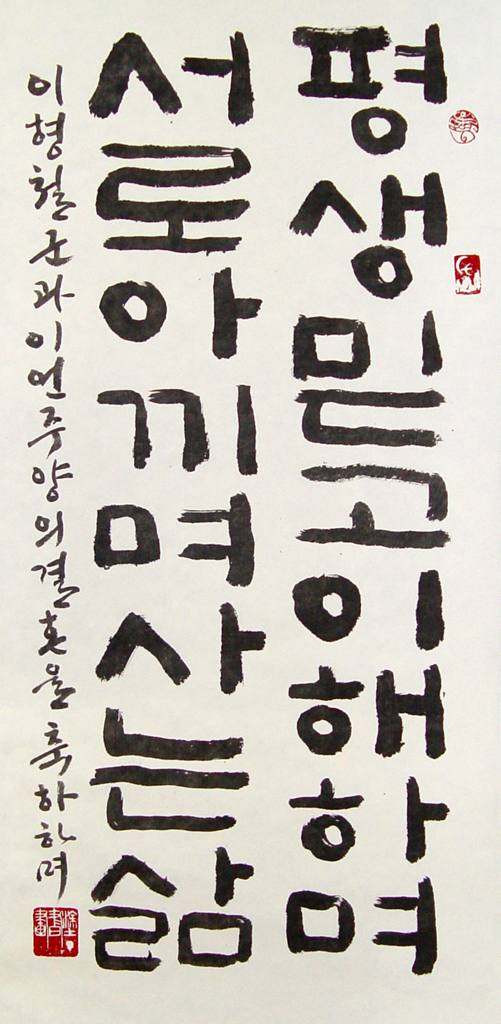 평생믿고이해하며
서로아끼며사는삶
이형철군과이언주양의결혼을축하하며